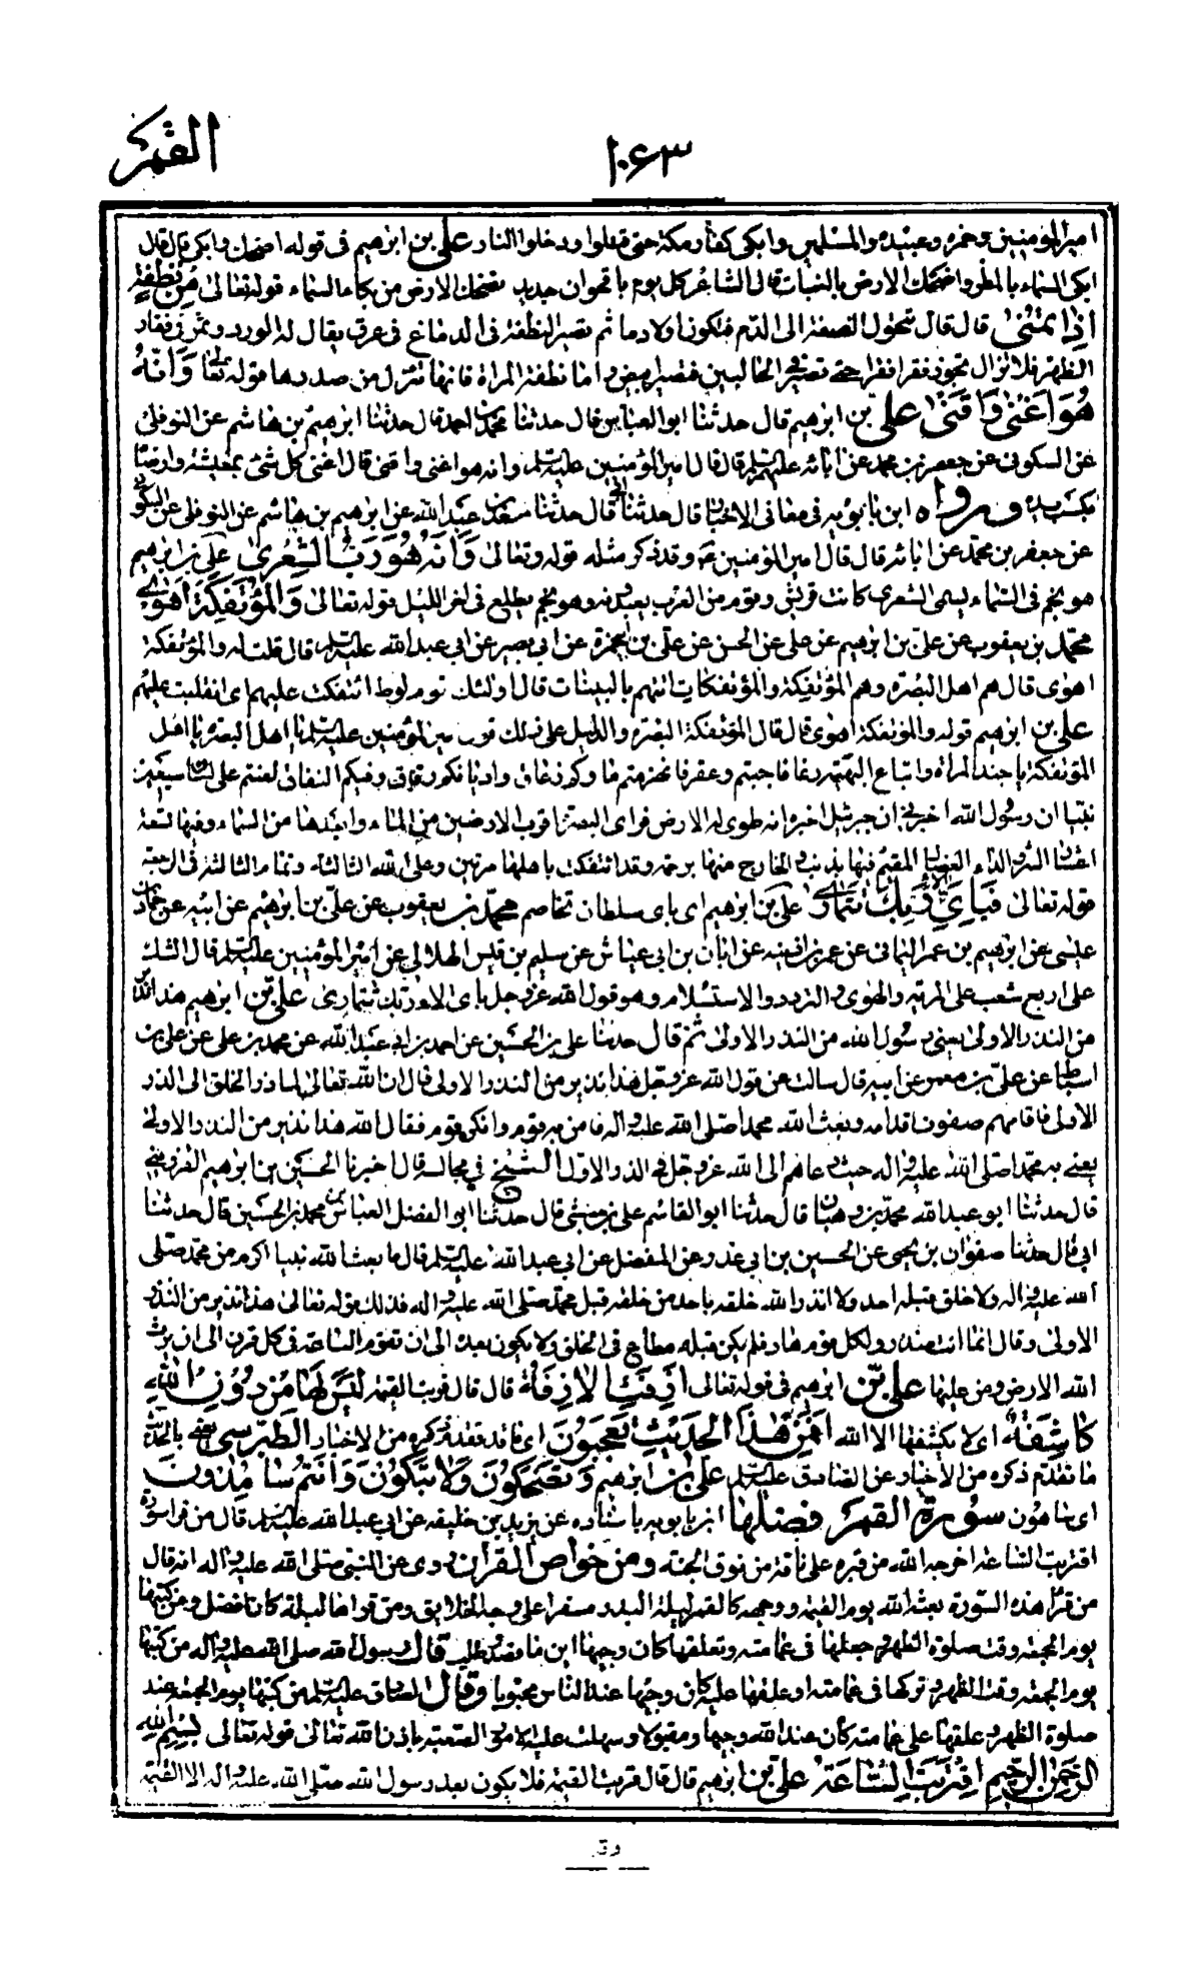 القمر
١٠٦٣
امير المؤمنين وحمزه وعبيده والمسلمين وابكى كفار مكة حتى قتلوا ودخلوا النار على بن ابرهيم فى قوله اضحك وابكى قال قال
ابكى السماء بالمطر واضحك الارض بالنبات قال الشاعر كل يوم باقحوان جديد تضحك الارض من بكاء السماء قوله تعالى من نطفة
اذا تمنى قال قال تتحول النطفة الى الدم فتكون اولا دما ثم تصير النطفة فى الدماغ فى عرق يقال له الوريد وتمر فى فقار
الظهر فلا تزال تجوز فقرا فقرا حتى تصير فى الحالبين فتصير ابيض واما نطفة المراة فانها تنزل من صدرها قوله تعالى وانه
هو اغنى واقنى على بن ابرهيم قال حدثنا ابو العباس قال حدثنا محمد بن احمد قال حدثنا ابرهيم بن هاشم عن النوفلى
عن السكونى عن جعفر بن محمد عن ابائه عليهم السلم قال قال امير المؤمنين عليه السلم وانه هو اغنى واقنى قال اغنى كل شئ بمعيشته وارضاه
بكسب يده ورواه ابن بابويه فى معانى الاخبار قال حدثنا ابى قال حدثنا سعد بن عبد الله عن ابرهيم بن هاشم عن النوفلى عن السكونى
عن جعفر بن محمد عن ابائه قال قال امير المؤمنين ع وقد ذكر مثله قوله وتعالى وانه هو رب الشعرى على بن ابرهيم
هو نجم فى السماء يسمى الشعرى كانت قريش وقوم من العرب يعبدونه وهو نجم يطلع فى اخر الليل قوله تعالى والمؤتفكة اهوى
محمد بن يعقوب عن على بن ابرهيم عن على عن الحسن عن على بن ابى حمزة عن ابى بصير عن ابى عبد الله عليه السلم قال قلت له والمؤتفكة
اهوى قال هم اهل البصره وهم المؤتفكة والمؤتفكات اتتهم بالبينات قال اولئك قوم لوط ائتفكت عليهم اى انقلبت عليهم
على بن ابرهيم قوله والمؤتفكة اهوى قال قال المؤتفكة البصره والدليل على ذلك قول امير المؤمنين عليه السلم يا اهل البصره يا اهل
المؤتفكة يا جند المراة واتباع البهيمة رغا فاجبتم وعقر فانهزمتم ماؤكم زعاق وادياركم رقاق وفيكم النفاق لعنتم على لسان سبعين
نبيا ان رسول الله اخبرنى ان جبرئيل اخبره انه طوى له الارض فراى البصرة اقرب الارضين من الماء وابعدها من السماء وفيها تسعة
اعشار الشر والداء العضال المقيم فيها بذنب والخارج منها برحمة وقد ائتفكت باهلها مرتين وعلى الله الثالثة وتمام الثالثة فى الرجعة
قوله تعالى فباى الاء ربك تتمارى على بن ابرهيم اى باى سلطان تخاصم محمد بن يعقوب عن على بن ابرهيم عن ابيه عن حماد بن
عيسى عن ابرهيم بن عمر اليمانى عن عمر بن اذينه عن ابان بن ابى عياش عن سليم بن قيس الهلالى عن امير المؤمنين عليه السلم قال الشك
على اربع شعب على المرية والهوى والتردد والاستسلام وهو قول الله عز وجل باى الاء ربك تتمارى على بن ابرهيم هذا نذير
من النذر الاولى يعنى رسول الله من النذر الاولى ثم قال حدثنا على بن الحسين عن احمد بن ابى عبد الله عن محمد بن على عن على بن
اسباط عن على بن معمر عن ابيه قال سالت عن قول الله عز وجل هذا نذير من النذر الاولى قال ان الله تعالى لما ذرا الخلق الى الذر
الاولى فاقامهم صفوف اقدامه وبعث الله محمدا صلى الله عليه واله فامن به قوم وانكره قوم فقال الله هذا نذير من النذر الاولى
يعنى به محمدا صلى الله عليه واله حيث دعاهم الى الله عز وجل فى الذر الاول الشيخ فى مجالسه قال اخبرنا الحسين بن ابرهيم القزوينى
قال حدثنا ابو عبد الله محمد بن وهبان قال حدثنا ابو القاسم على بن حبشى قال حدثنا ابو الفضل العباس بن محمد بن الحسين قال حدثنا
ابى قال حدثنا صفوان بن يحيى عن الحسين بن ابى غندر عن المفضل عن ابى عبد الله عليه السلم قال ما بعث الله نبيا اكرم من محمد صلى
الله عليه واله ولا خلق قبله احد ولا انذر الله خلقه باحد من خلقه قبل محمد صلى الله عليه واله فذلك قوله تعالى هذا نذير من النذر
الاولى وقال انما انت منذر ولكل قوم هاد فلم يكن قبله مطاع فى الخلق ولا يكون بعده الى ان تقوم الساعة فى كل قرن الى ان يرث
الله الارض ومن عليها على بن ابرهيم فى قوله تعالى ازفت الازفة قال قال قربت القيمة ليس لها من دون الله
كاشفة اى لا يكشفها الا الله افمن هذا الحديث تعجبون اى ما قد تقدم ذكره من الاخبار الطبرسى يعنى بالحديث
ما تقدم ذكره من الاخبار عن الصادق عليه السلم على بن ابرهيم وتضحكون ولا تبكون وانتم سامدون
اى ساهون سورة القمر فضلها ابن بابويه باسناده عن يزيد بن خليفه عن ابى عبد الله عليه السلم قال من قرا سورة
اقتربت الساعة اخرجه الله من قبره على ناقة من نوق الجنة ومن خواص القران روى عن النبى صلى الله عليه واله انه قال
من قرا هذه السورة بعثه الله يوم القيمة ووجهه كالقمر ليلة البدر مسفرا على وجه الخلايق ومن قراها كل ليلة كان افضل ومن كتبها
يوم الجمعة وقت صلوة الظهر وجعلها فى عمامته وتعلقها كان وجيها اين ما قصد وطلب قال رسول الله صلى الله عليه واله من كتبها
يوم الجمعة وقت الظهر وتركها فى عمامته او علقها عليه كان وجيها عند الناس محبوبا وقال الصادق عليه السلم من كتبها يوم الجمعة عند
صلوة الظهر وعلقها على عمامته كان عند الله وجيها ومقبولا وسهلت عليه الامور الصعبة باذن الله تعالى قوله تعالى بسم الله
الرحمن الرحيم اقتربت الساعة على بن ابرهيم قال قال قربت القيمة فلا يكون بعد رسول الله صلى الله عليه واله الا القيمة
وقد